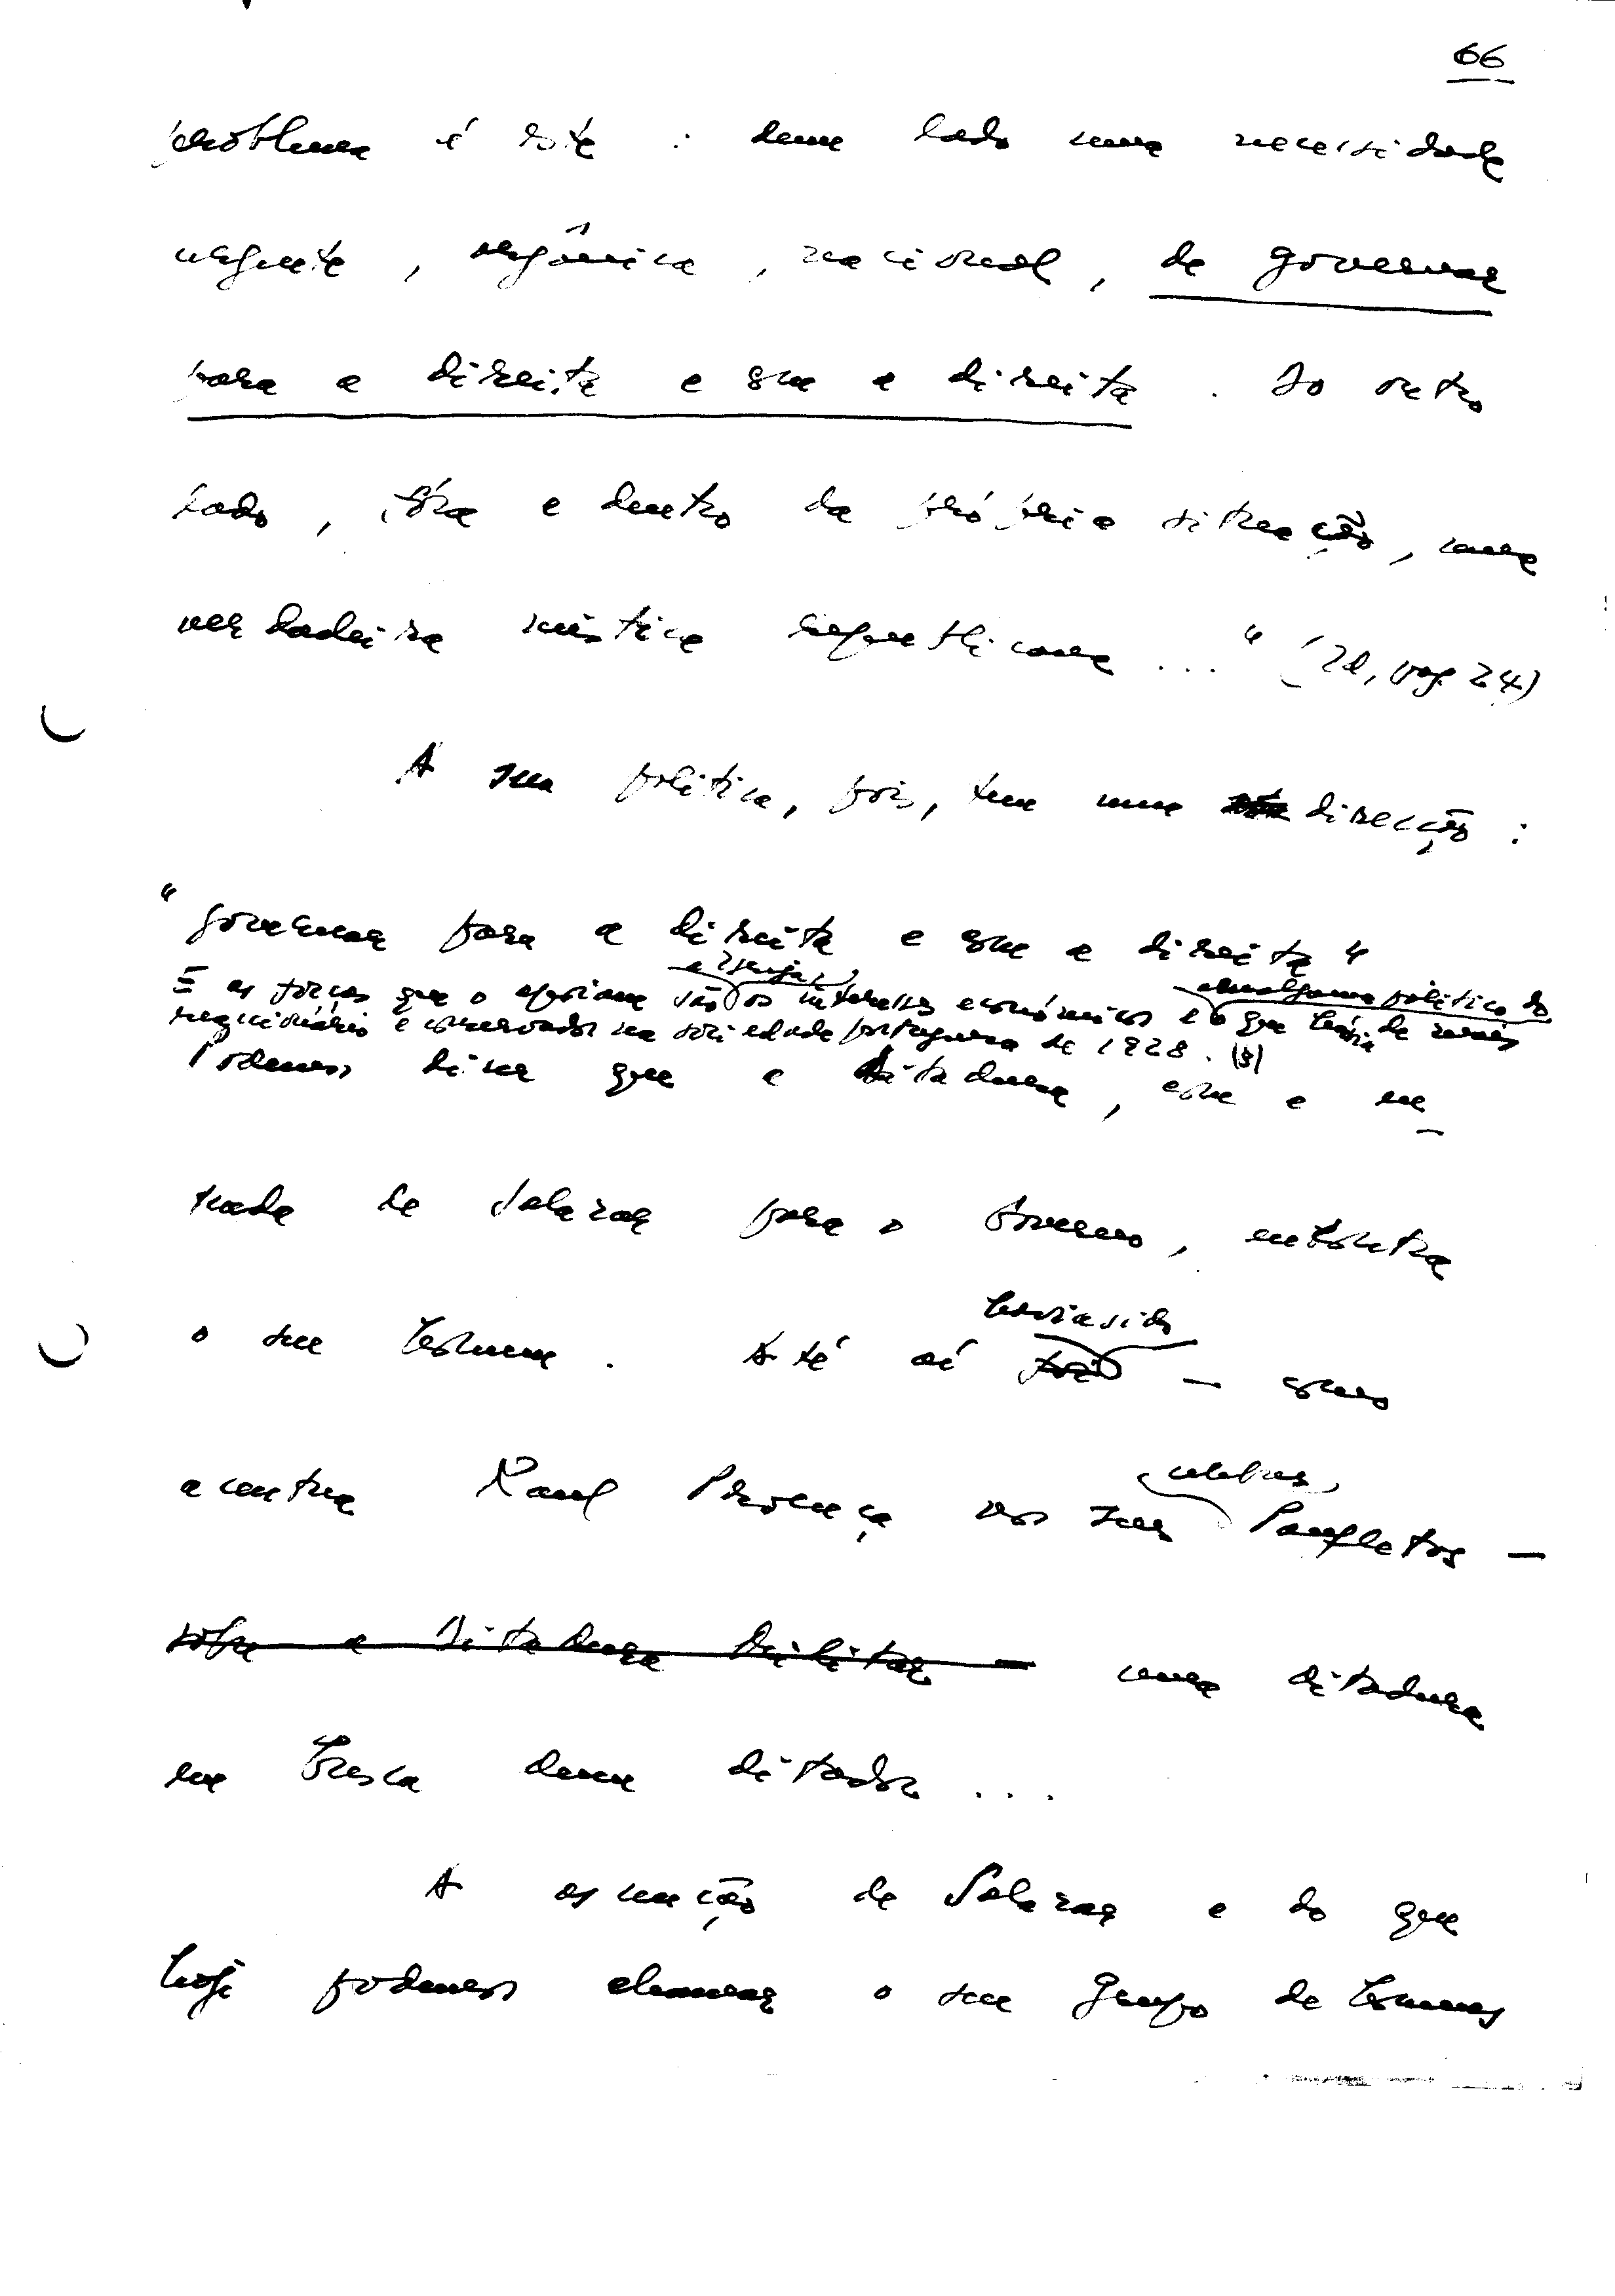 66
problema é este : dum lado uma necessidade
urgente, orgânica, nacional, de governar
para a direita e com a direita. Do outro
lado, fóra e dentro da própria situação, uma
verdadeira mística republicana ..." (2d, pag. 24)
A sua política, pois, tem uma direcção :
"governar para a direita e com a direita"
E as forças que o apoiam são os interesses económicos e o amalgama político do que havia de mais
reaccionário e conservador na sociedade portuguesa de 1928. (8)
Podemos dizer que a Ditadura, com a en-
trada de Salazar para o Governo, encontra
o seu homem. Até aí havia sido — como
acentua Raul Proença nos seus celebres Panfletos —
sobre a Ditadura Militar — uma ditadura
em busca dum ditador ...
A ascenção de Salazar e do que
hoje podemos chamar o seu grupo de homens